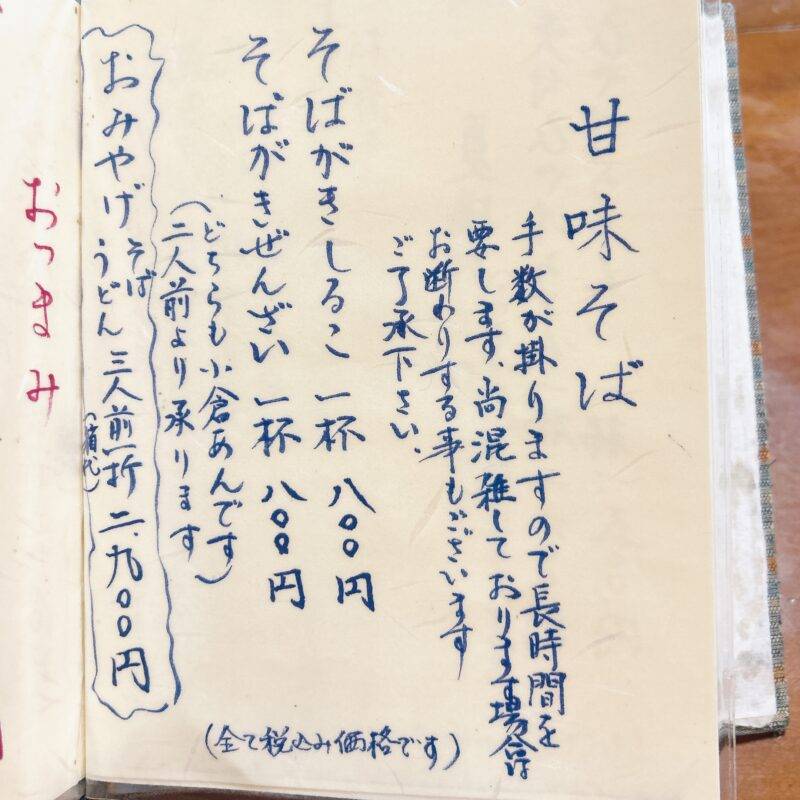 甘味そば
手数が掛りますので長時間を
要します、尚混雑しております場合は
お断りする事もございます
ご了承下さい、
そばがきしるこ 一杯 八〇〇円
そばがきぜんざい 一杯 八〇〇円
(どちらも小倉あんです)
(二人前より承ります)
おみやげ そば うどん 三人前一折 二、九〇〇円
(全て税込み価格です)
おつまみ